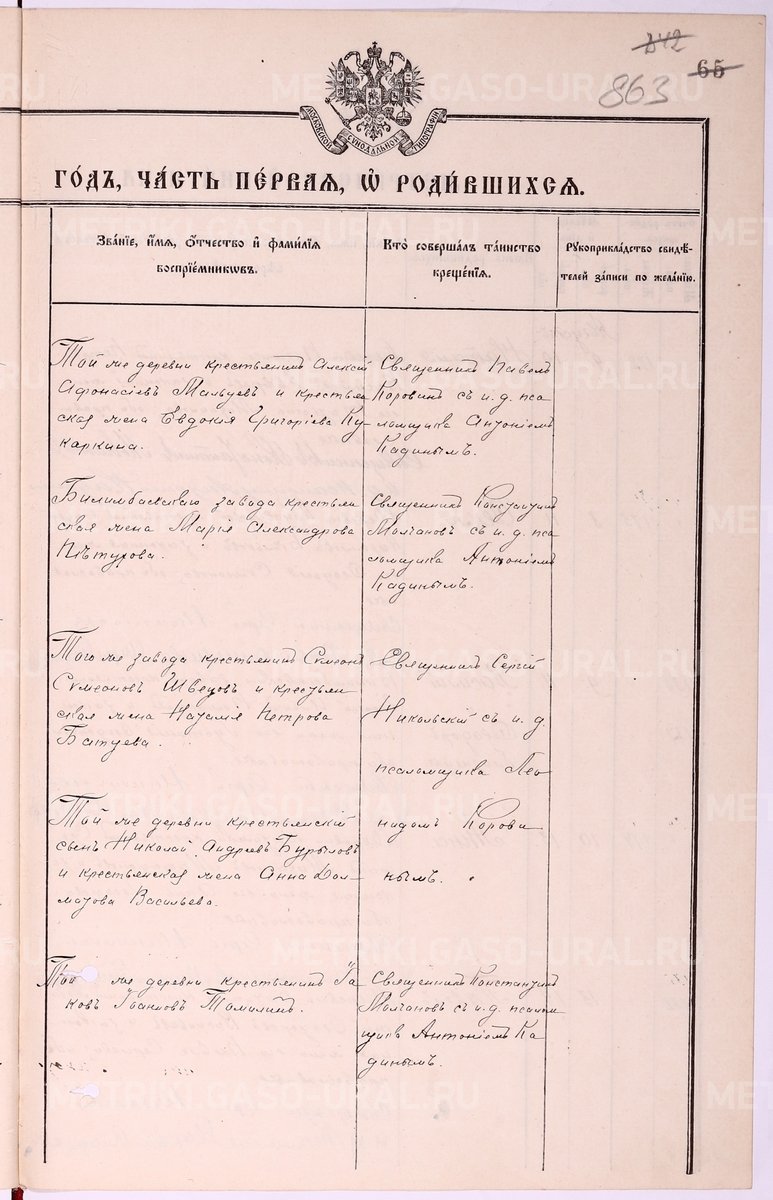 242
65
863
МОСКОВСКОЙ СѴНОДАЛЬНОЙ ТИПОГРАФІИ
METRIKI.GASO-URAL.RU
ГО́ДЪ, ЧА́СТЬ ПЕ́РВАЯ, Ѡ҆ РОДИ́ВШИХСЯ.
Зва́нїе, и҆́мѧ, ѻ҆́тчество и҆ фами́лїѧ
воспрїе́мникѡвъ.
Кто̀ соверша́лъ та́инство
креще́нїѧ.
Рꙋкоприкла́дство свидѣ́-
телей за́писи по жела́нїю.
Той же деревни крестьянинъ Алексій
Афонасіевъ Мальцевъ и крестьян
ская жена Евдокія Григоріева Ку-
каркина.
Священникъ Павелъ
Коровинъ съ и. д. пса
ломщика Антоніемъ
Кадинымъ.
Билимбаевскаго завода крестьян
ская жена Марія Александрова
Пѣтухова.
Священникъ Константинъ
Молчановъ съ и. д. пса
ломщика Антоніемъ
Кадинымъ.
Того же завода крестьянинъ Сѵмеонъ
Сѵмеоновъ Швецовъ и крестьян
ская жена Наталія Петрова
Батуева.
Священникъ Сергій
Никольскій съ и. д.
псаломщика Лео
нидомъ Корови
нымъ.
Той же деревни крестьянскій
сынъ Николай Андреевъ Бурыловъ
и крестьянская жена Анна Дол-
матова Васильева.
Той же деревни крестьянинъ Іа-
ковъ Іоанновъ Томилинъ.
Священникъ Константинъ
Молчановъ съ и. д. псалом
щика Антоніемъ Ка
динымъ.